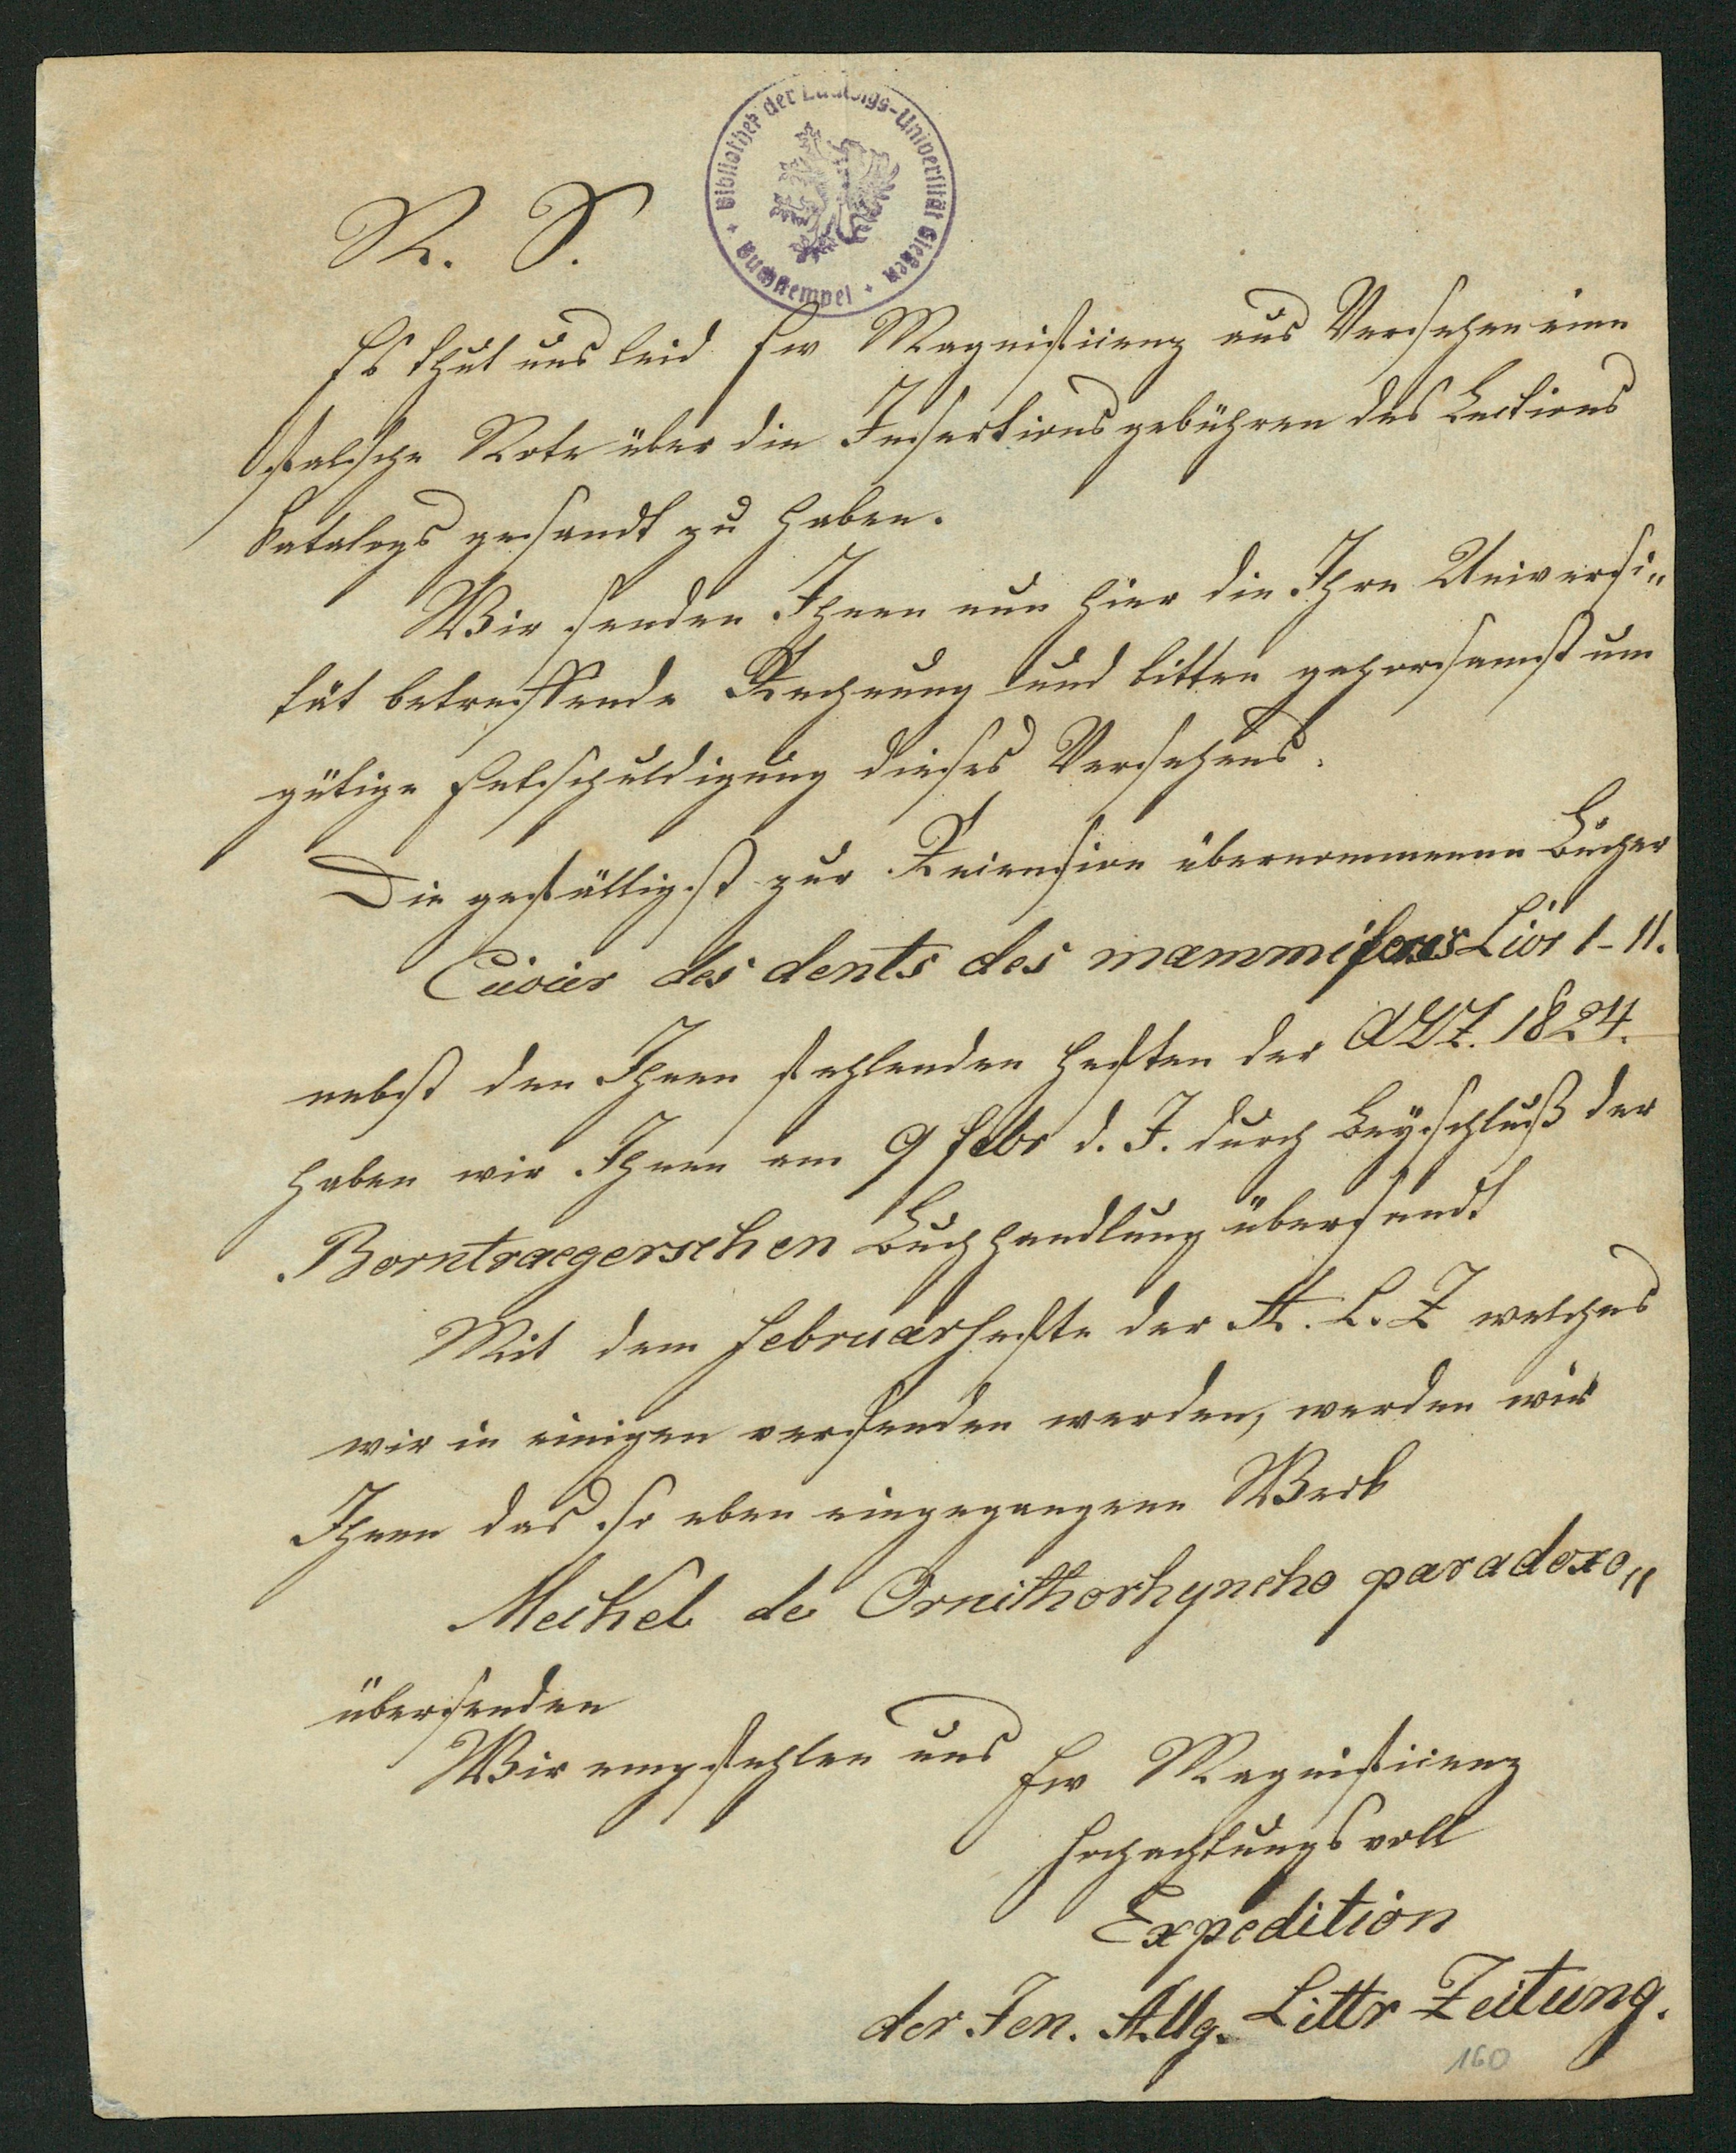 Bibliothek der Ludwigs-Universität Gießen
Buchstempel
N. S.
Es thut uns leid Ew Magnificenz aus Versehen eine
falsche Note über die Insertionsgebühren des Lections
Catalogs gesandt zu haben.
Wir senden Ihnen nun hier die Ihre Universi„
tät betreffende Rechnung und bitten gehorsamst um
gütige Entschuldigung dieses Versehens.
Die gefälligst zur Recension übernommenen Bücher
Cuvier des dents des mammiferes Livr 1-11.
nebst den Ihnen fehlenden Heften der ALZ. 1824.
haben wir Ihnen am 9 Febr d. J. durch Beyschluß der
Borntraegerschen Buchhandlung übersandt
Mit dem Februarhefte der A. L. Z welches
wir in einigen versenden werden, werden wir
Ihnen das so eben eingegangene Werk
Meckel de Ornithorhyncho paradoxo„
übersenden
Wir empfehlen uns Ew Magnificenz
Hochachtungsvoll
Expedition
der Jen. Allg. Littr Zeitung.
160